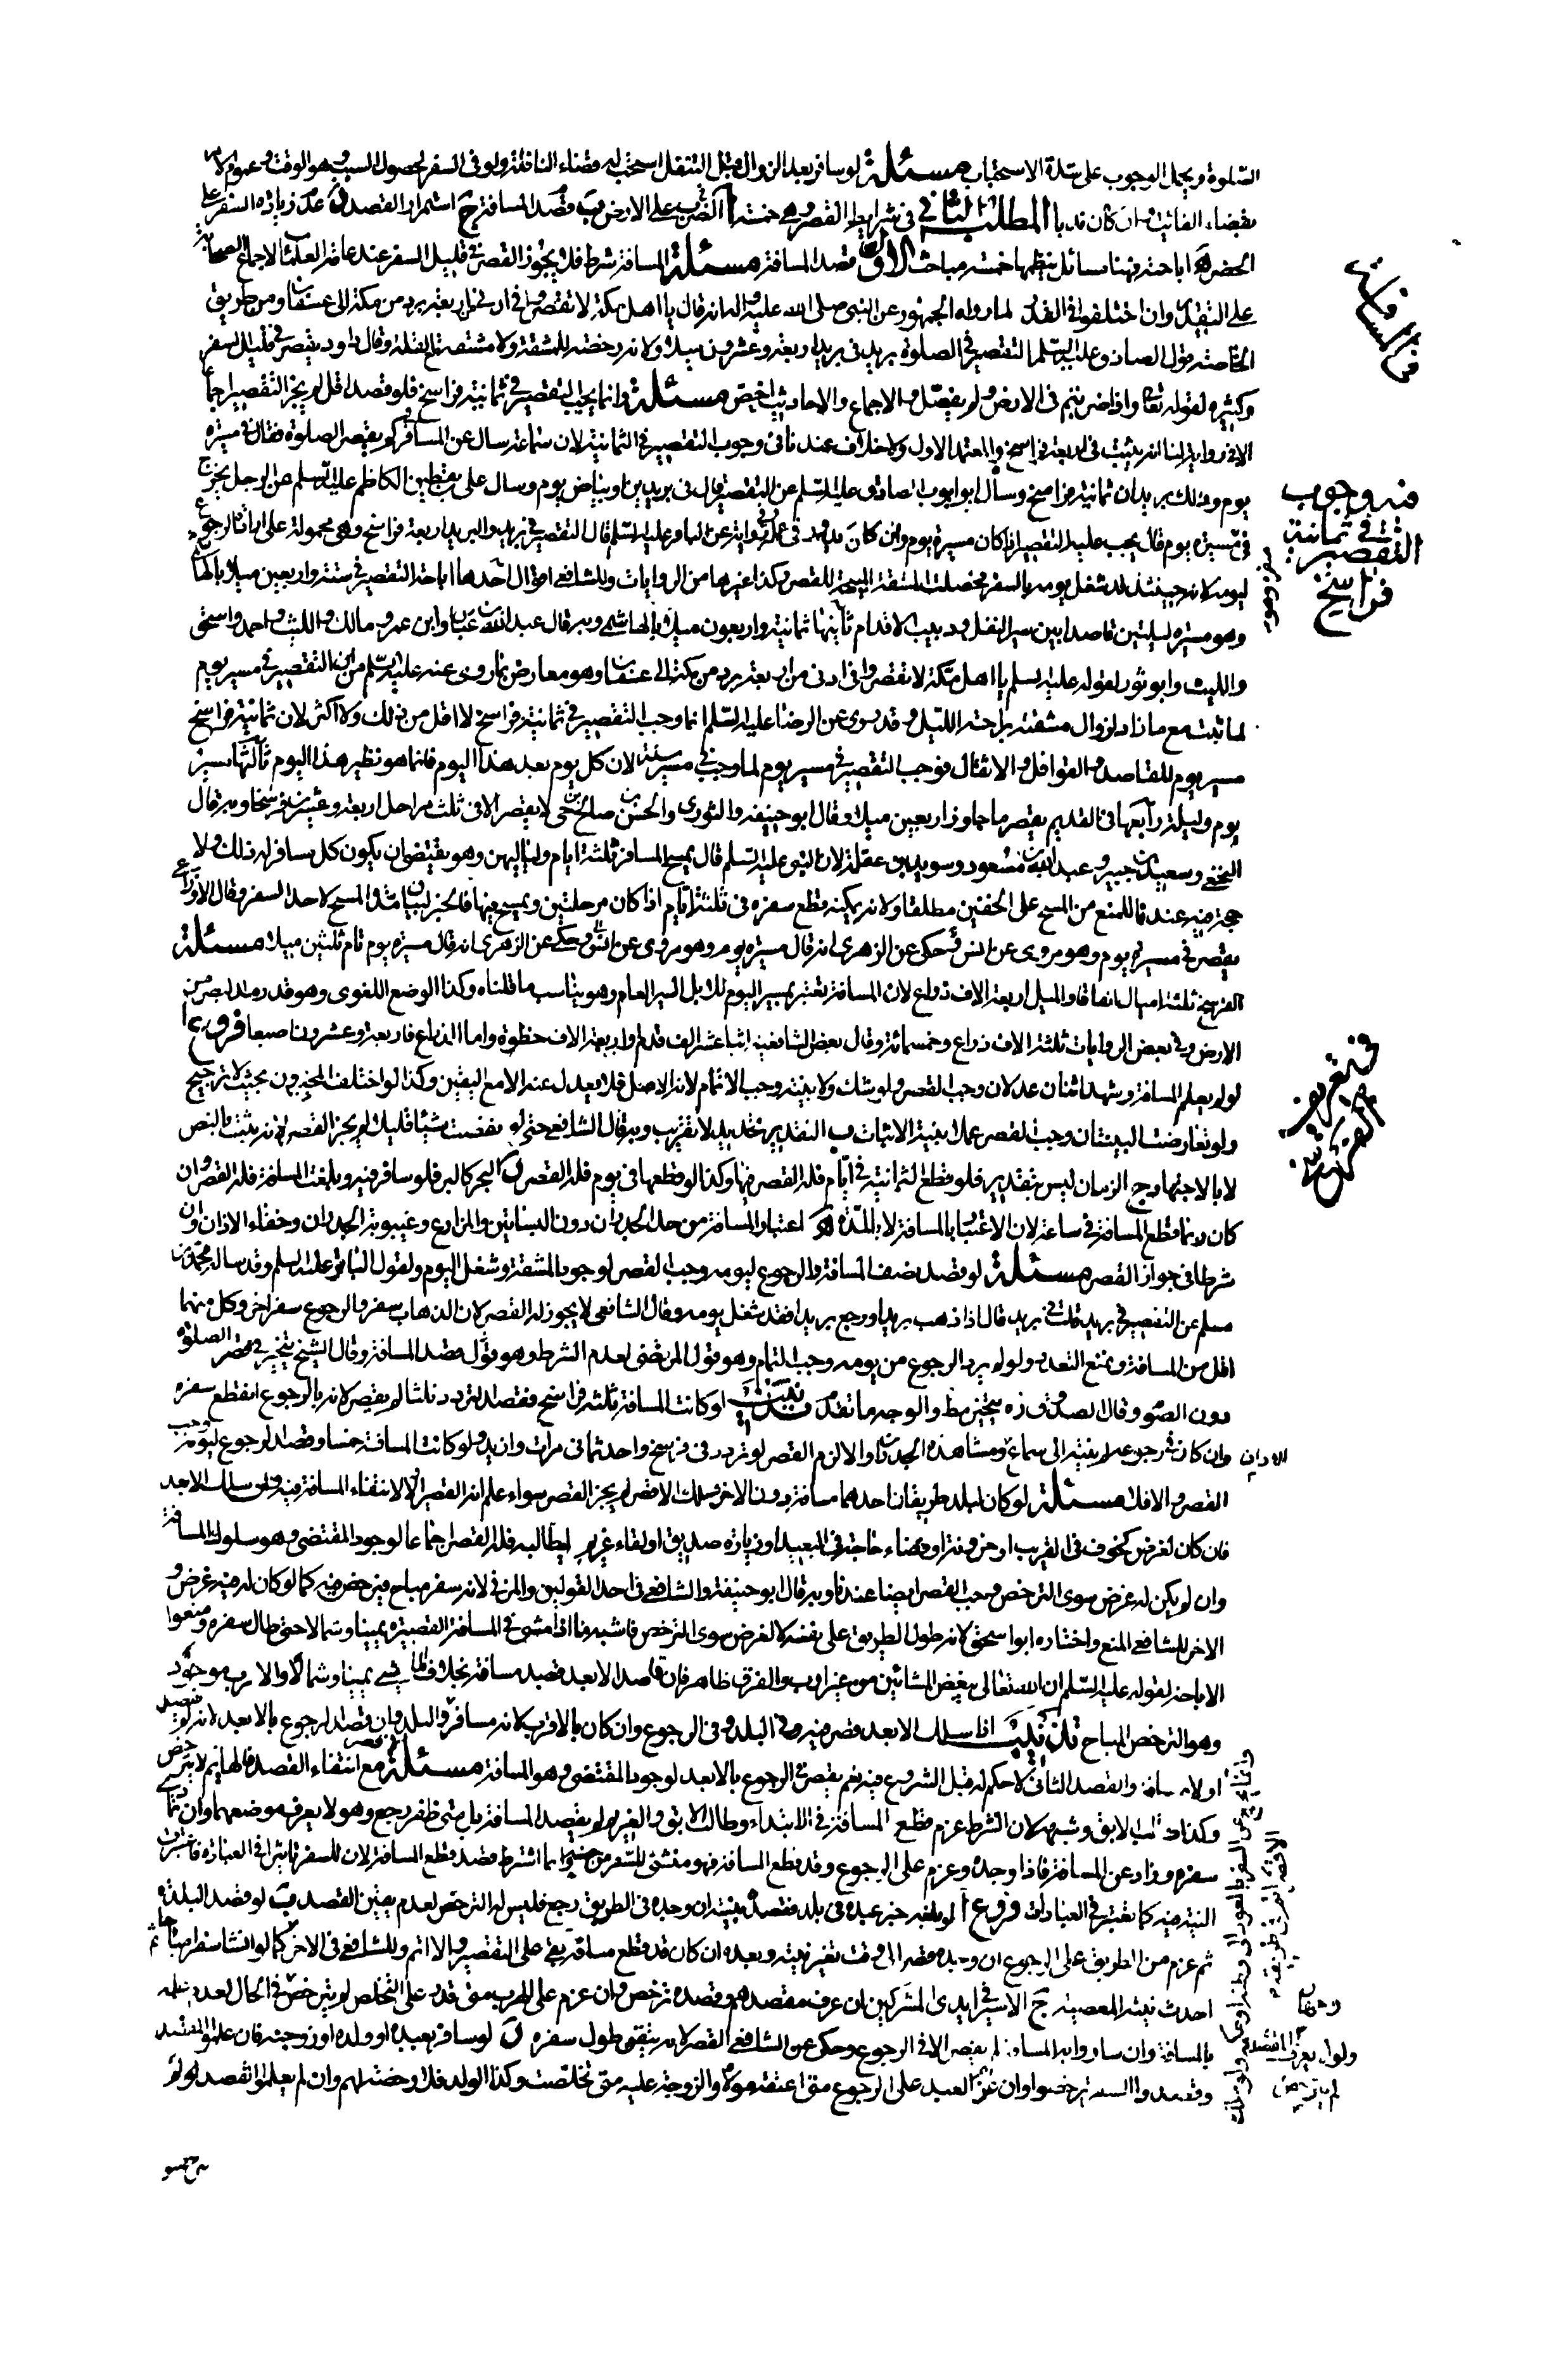 الصلوة ويحمل الوجوب على شدة الاستحباب مسئلة لو سافر بعد الزوال قبل التنفل استحب له قضاء النافلة ولو في السفر لحصول السبب وهو الوقت وعموم الامر
بقضاء الفائت وان كان ندبا المطلب الثاني في شرايط القصر وهي خمسة ا الضرب في الارض ب قصد المسافة ج استمرار القصد د عدم زيادة السفر على
الحضر ه اباحته فهنا مسائل ينظمها خمسة مباحث الاول قصد المسافة مسئلة المسافة شرط فلا يجوز القصر في قليل السفر عند عامة العلماء لاجماع الصحابة
على التقدير وان اختلفوا في القدر لما رواه الجمهور عن النبي صلى الله عليه واله انه قال يا اهل مكة لا تقصروا في ادنى من اربعة برد من مكة الى عسفان ومن طريق
الخاصة قول الصادق عليه السلم التقصير في الصلوة بريد في بريد اربعة وعشرون ميلا ولانه رخصة للمشقة ولا مشقة مع القلة وقال داود يقصر في قليل السفر
وكثيره لقوله تعالى واذا ضربتم في الارض ولم يفصل والاجماع والاحاديث اخص مسئلة وانما يجب التقصير في ثمانية فراسخ فلو قصد اقل لم يجز التقصير اجماعا
الا في رواية لنا انه يثبت في اربعة فراسخ والمعتمد الاول ولا خلاف عندنا في وجوب التقصير في الثمانية لان سماعة سال عن المسافر في كم يقصر الصلوة فقال في مسيرة
يوم وذلك بريدان ثمانية فراسخ وسال ابو ايوب الصادق عليه السلم عن التقصير قال في بريدين او بياض يوم وسال علي بن يقطين الكاظم عليه السلم عن الرجل يخرج
في مسيرة يوم قال يجب عليه التقصير اذا كان مسيرة يوم وان كان يدور في عمله وفي رواية عن الباقر عليه السلم قال التقصير في بريد والبريد اربعة فراسخ وهي محمولة على ارادة الرجوع
ليومه لانه حينئذ قد شغل يومه بالسفر فحصلت المشقة المبيحة للقصر وكذا غيرها من الروايات وللشافعي اقوال احدها اباحة التقصير في ستة واربعين ميلا بالهاشمي
وهو مسيرة ليلتين قاصدا بين سير النقل ودبيب الاقدام ثانيها ثمانية واربعون ميلا بالهاشمي وبه قال عبد الله بن عباس وابن عمر ومالك والليث واحمد واسحق
والليث وابو ثور لقوله عليه السلم يا اهل مكة لا تقصروا في ادنى من اربعة برد من مكة الى عسفان وهو معارض بما روى عنه عليه السلم من ان التقصير في مسير يوم
لما ثبت مع ما زاد لزوال مشقته براحة الليل وقد روى عن الرضا عليه السلم انما وجب التقصير في ثمانية فراسخ لا اقل من ذلك ولا اكثر لان ثمانية فراسخ
مسير يوم للقاصد والقوافل والاثقال فوجب التقصير في مسير يوم لما وجب في مسير سنة لان كل يوم بعد هذا اليوم فانما هو نظير هذا اليوم ثالثها مسير
يوم وليلة رابعها في القديم يقصر ما جاوز اربعين ميلا وقال ابو حنيفة والثوري والحسن بن صالح بن حي لا يقصر الا في ثلث مراحل اربعة وعشرين فرسخا وبه قال
النخعي وسعيد بن جبير وعبد الله بن مسعود وسويد بن غفلة لان النبي عليه السلم قال يمسح المسافر ثلثة ايام ولياليهن وهو يقتضي ان يكون كل مسافر له ذلك ولا
حجة فيه عندنا للمنع من المسح على الخفين مطلقا ولانه يمكنه قطع سفره في ثلثة ايام اذا كان مرحلتين ويمسح فيها فالخبر لبيان مدة المسح لا حد السفر وقال الاوزاعي
يقصر في مسيرة يوم وهو مروي عن انس وحكي عن الزهري انه قال مسيرة يوم وهو مروي عن انس وحكي عن الزهري انه قال مسيرة يوم تام ثلثين ميلا مسئلة
الفرسخ ثلثة اميال اتفاقا والميل اربعة الاف ذراع لان المسافة تعتبر بمسير اليوم للابل السير العام وهو يناسب ما قلناه وكذا الوضع اللغوي وهو قدر مد البصر من
الارض وفي بعض الروايات ثلثة الاف ذراع وخمسمائة وقال بعض الشافعية اثنا عشر الف قدم او اربعة الاف خطوة واما الذراع فاربعة وعشرون اصبعا فروع ا
لو لم يعلم المسافة وشهد اثنان عدلان وجب القصر ولو شك ولا بينة وجب الاتمام لانه الاصل فلا يعدل عنه الا مع اليقين وكذا لو اختلف المخبرون بحيث لا ترجيح
ولو تعارضت البينتان وجب القصر عملا ببينة الاثبات ب التقدير تحديد لا تقريب وبه قال الشافعي حتى لو نقصت شيئا قليلا لم يجز القصر لانه يثبت بالنص
لا بالاجتهاد ج الزمان ليس بتقدير فلو قطع الثمانية في ايام فله القصر فيها وكذا لو قطعها في يوم فله القصر د البحر كالبر فلو سافر فيه وبلغت المسافة فله القصر وان
كان ربما قطع المسافة في ساعة لان الاعتبار بالمسافة لا بالمدة ه اعتبار المسافة من حد الجدران دون البساتين والمزارع وغيبوبة الجدران وخفاء الاذان وان
شرطا في جواز القصر مسئلة لو قصد نصف المسافة والرجوع ليومه وجب القصر لوجود المشقة وشغل اليوم ولقول الباقر عليه السلم وقد ساله محمد بن
مسلم عن التقصير في بريد قلت في بريد قال اذا ذهب بريدا ورجع بريدا فقد شغل يومه وقال الشافعي لا يجوز له القصر لان الذهاب سفر والرجوع سفر اخر وكل منهما
اقل من المسافة ونمنع التعدد ولو لم يرد الرجوع من يومه وجب التمام وهو قول المرتضى لعدم الشرط وهو قصد المسافة وقال الشيخ يتخير في قصر الصلوة
دون الصوم وقال الصدوق ره يتخير مطلقا والوجه ما تقدم تذنيب لو كانت المسافة ثلثة فراسخ فقصد التردد ثلثا لم يقصر لانه بالرجوع انقطع سفره
وان كان في رجوعه لم ينته الى سماع الاذان ومشاهدة الجدران والا لزم القصر لو تردد في فرسخ واحد ثماني مرات وازيد ولو كانت المسافة خمسا وقصد الرجوع ليومه وجب
القصر والا فلا مسئلة لو كان لبلد طريقان احدهما مسافة دون الاخر فسلك الاقصر لم يجز القصر سواء علم انه القصير او لا لانتفاء المسافة فيه وان سلك الابعد
فان كان لغرض كخوف في القريب او حزونة او قضاء حاجة في البعيد او زيارة صديق او لقاء غريم ليطالبه فله القصر اجماعا لوجود المقتضي وهو سلوك المسافة
وان لم يكن له غرض سوى الترخص وجب القصر ايضا عندنا وبه قال ابو حنيفة والشافعي في احد القولين والمزني لانه سفر مباح فترخص فيه كما لو كان له فيه غرض و
الاخر للشافعي المنع واختاره ابو اسحق لانه طول الطريق على نفسه لا لغرض سوى الترخص فاشبه ما اذا مشى في المسافة القصيرة يمينا وشمالا حتى طال سفره ومنعوا
الاباحة لقوله عليه السلم ان الله تعالى يبغض المشائين من غير ارب والفرق ظاهر فان قاصد الابعد قصد مسافة بخلاف الماشي يمينا وشمالا والارب موجود
وهو الترخص المباح تذنيب اذا سلك الابعد قصر فيه وفي البلد وفي الرجوع وان كان بالاقرب لانه مسافر والبلد وان قصد الرجوع بالابعد لانه لم يقصد
اولا مسافة والقصد الثاني لا حكم له قبل الشروع فيه نعم يقصر في الرجوع بالابعد لوجود المقتضي وهو المسافة مسئلة لا قصر مع انتفاء القصد فالهايم لا يترخص
وكذا طالب الابق وشبهه لان الشرط عزم قطع المسافة في الابتداء وطالب الابق والغريم لم يقصد المسافة بل متى ظفر رجع وهو لا يعرف موضعهما وان تمادى
سفره وزاد عن المسافة فاذا وجده وعزم على الرجوع وقد قطع المسافة فهو منشئ للسفر من حينه وانما اشترط قصد قطع المسافة لان للسفر تاثيرا في العبادة فاعتبرت
النية فيه كما تعتبر في العبادات فروع ا لو بلغه خبر عبده في بلد فقصده بنية ان وجده في الطريق رجع فليس له الترخص لعدم يقين القصد ب لو قصد البلد
ثم عزم من الطريق على الرجوع ان وجده قصر الى وقت تغير نيته وبعده ان كان قد قطع مسافة بقي على التقصير والا اتم وللشافعي في الاخر كما لو انشا سفرا مباحا ثم
احدث نية المعصية ج الاسير في ايدي المشركين ان عرف مقصدهم وقصده ترخص وان عزم على الهرب متى قدر على التخلص لم يترخص في الحال لعدم علمه
بالمسافة وان ساروا به المسافة لم يقصر الا في الرجوع وحكي عن الشافعي القصر لانه تيقن طول سفره د لو سافر بعبده او ولده او زوجته فان علموا المقصد
وقصدوا السفر ترخصوا وان عزم العبد على الرجوع متى اعتقه مولاه والزوجة عليه متى تخلصت وكذا الولد فلا رخصة لهم وان لم يعلموا القصد لم
في المسافة
في وجوب التقصير في ثمانية فراسخ
في تعريف الفرسخ